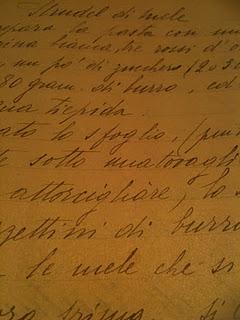 Strudel di mele
epara la pasta con un
rina bianca, tre rossi d'o
un po' di zucchero (20 30
80 gram. di burro, ed
ua tiepida.
ato lo sfoglio,
te sotto una tovagli
attorcigliare, lo s
zzettini di burro
le mele che si
ora prima